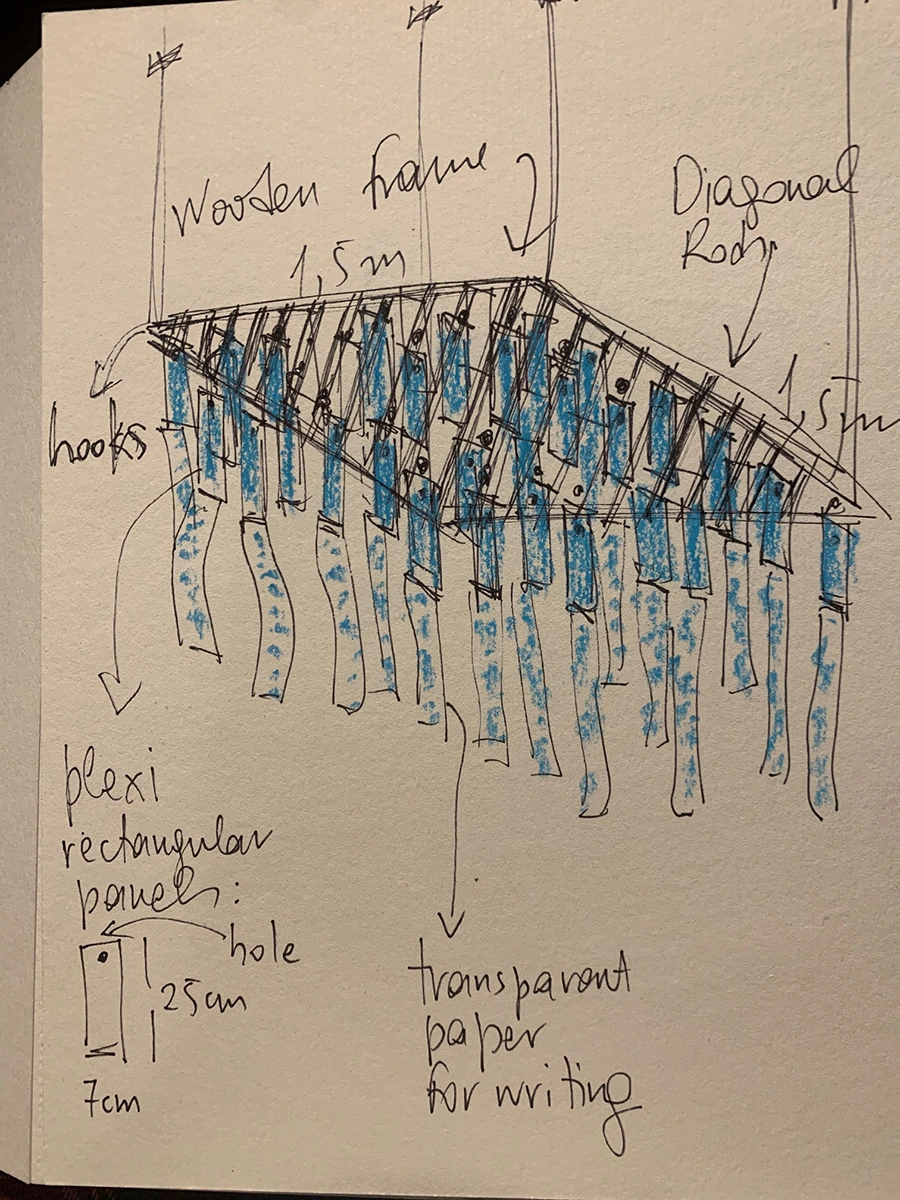 Wooden frame
1,5m
Diagonal
Rods
1,5m
hooks
plexi
rectangular
panels:
hole
25cm
7cm
transparent
paper
for writing